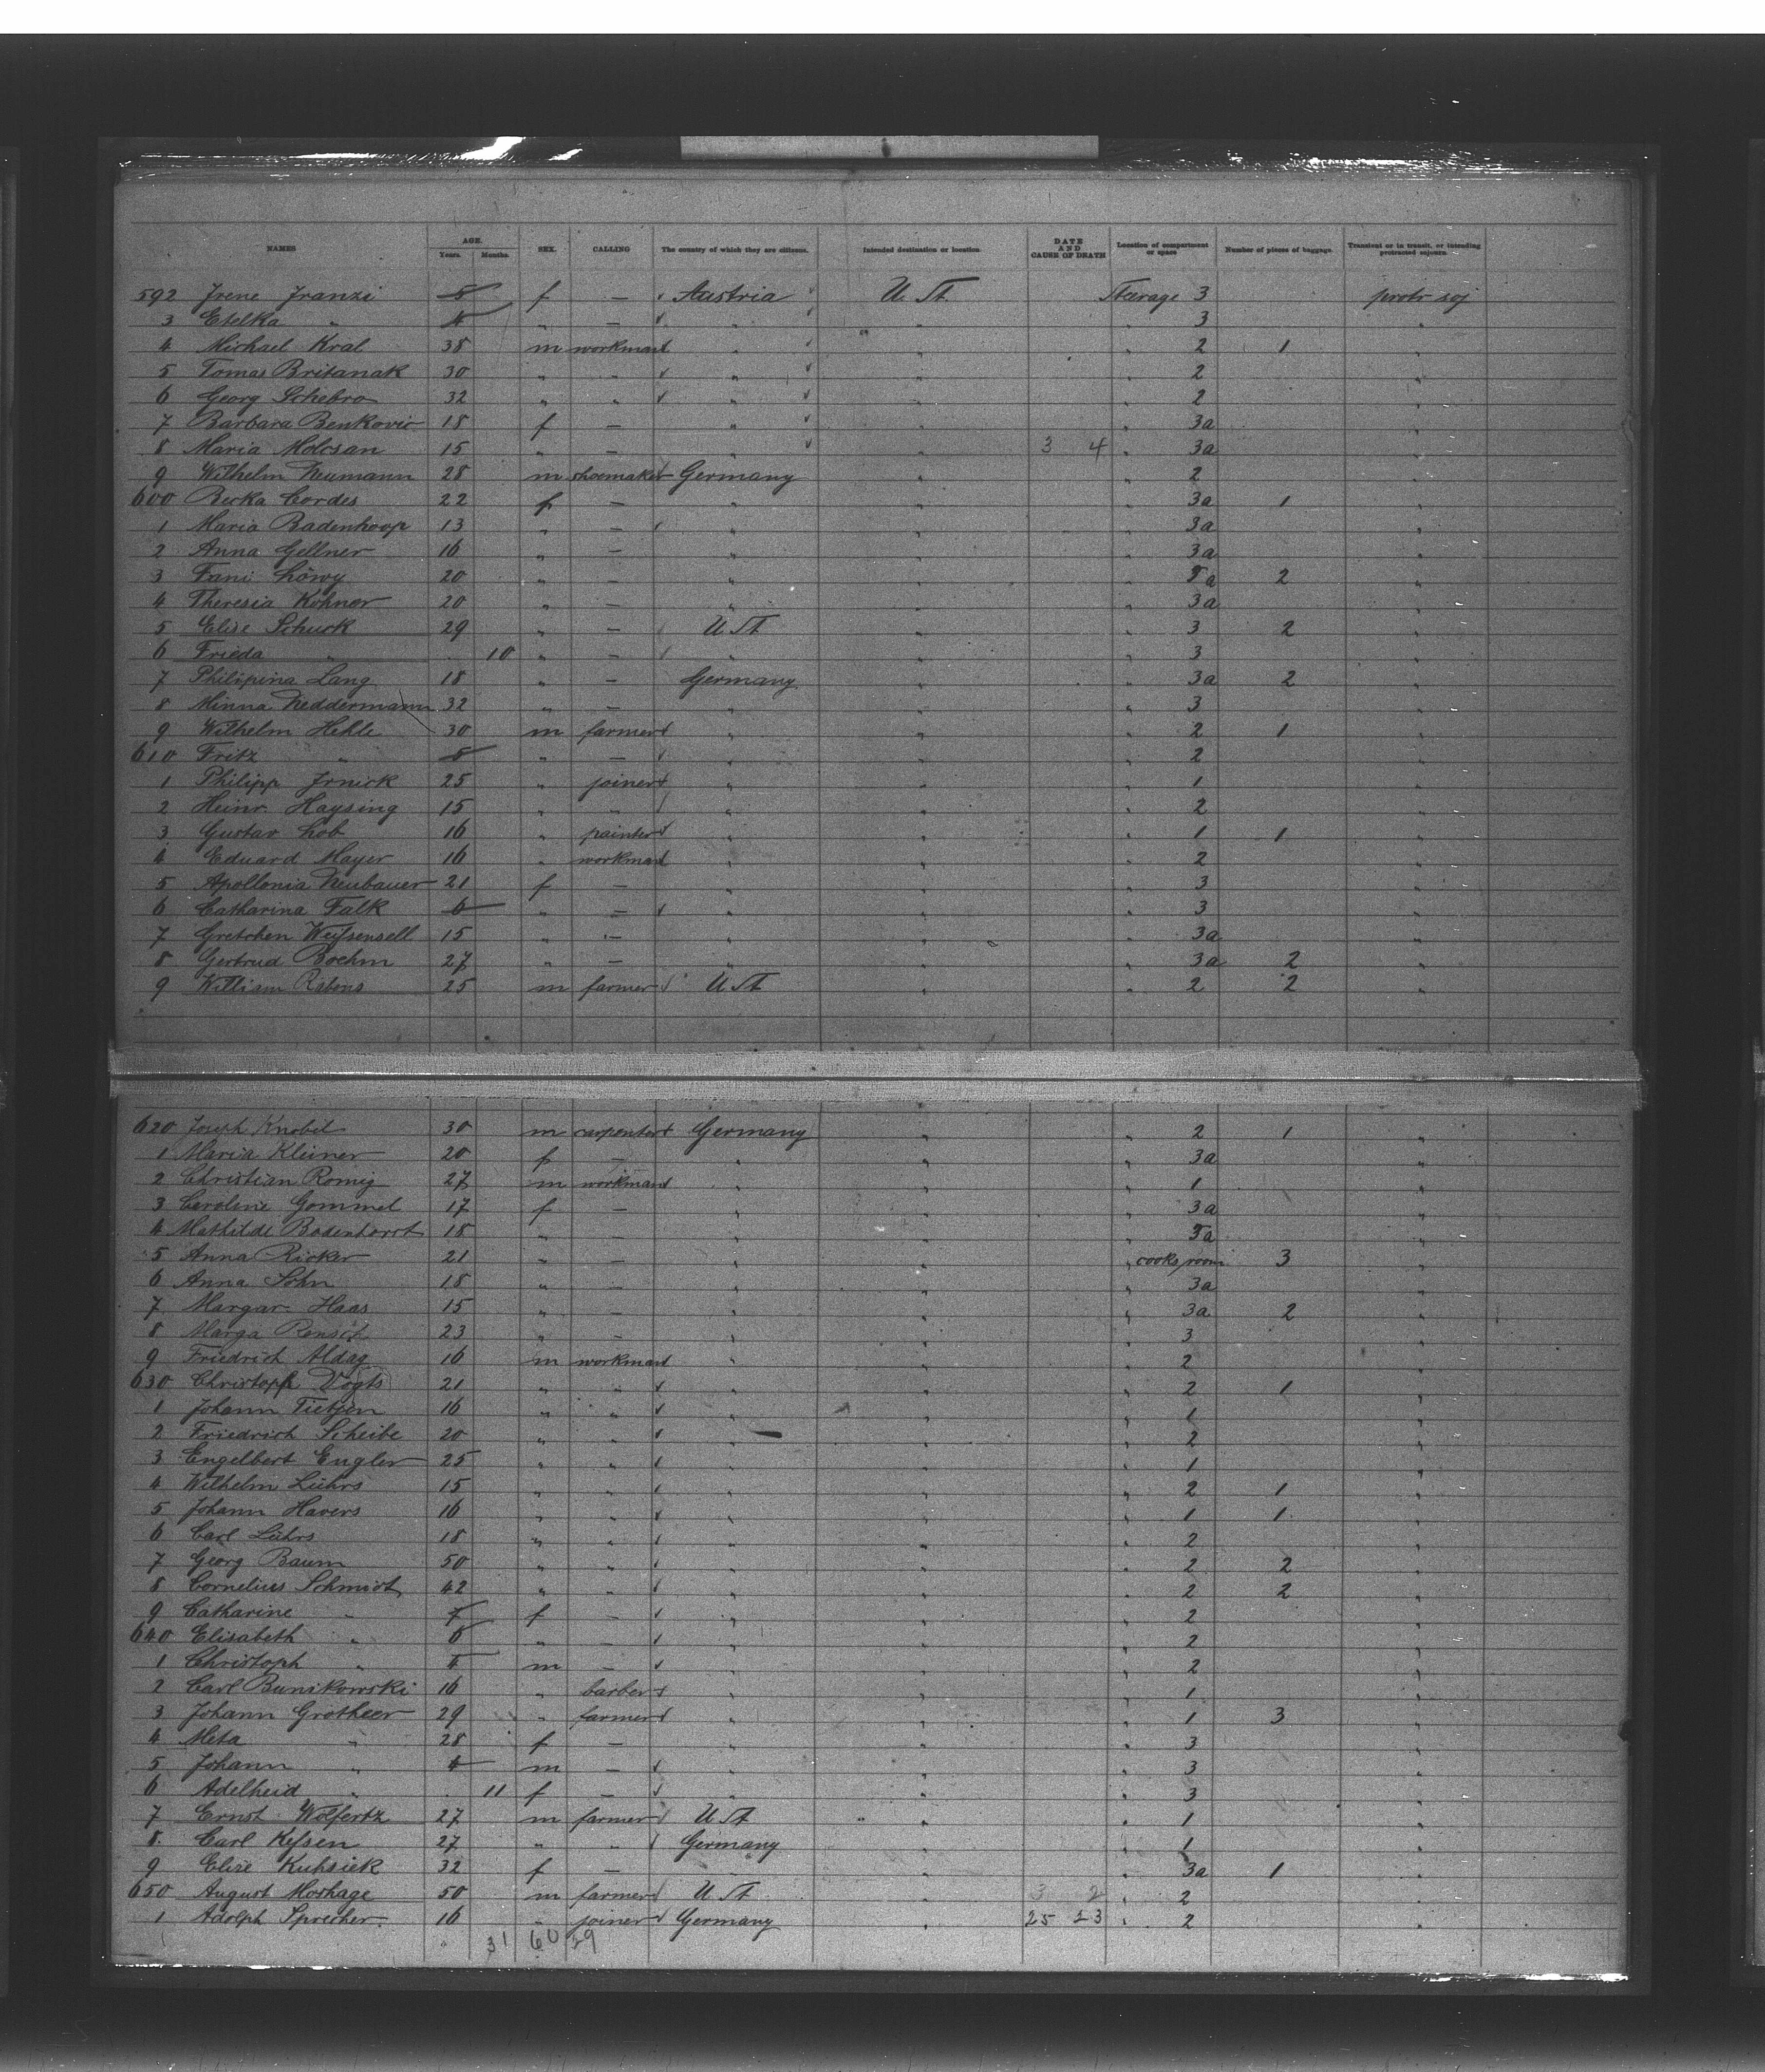 NAMES AGE. Years. Months. SEX. CALLING The country of which they are citizens. Intended destination or location DATE AND CAUSE OF DEATH Location of compartment or space Number of pieces of baggage. Transient or in transit, or intending protracted sojourn.
592 Irene Franzi 5 f — Austria U. St. Steerage 3 protr soj
3 Etelka " 4 " — " " " 3 "
4 Michael Kral 38 m workman " " " 2 1 "
5 Tomas Britanak 30 " " " " " 2 "
6 Georg Schebro 32 " " " " " 2 "
7 Barbara Benkovic 18 f — " " " 3a "
8 Maria Molcsan 15 " — " " 3 4 " 3a "
9 Wilhelm Neumann 28 m shoemaker Germany " " 2 "
600 Becka Cordes 22 f — " " " 3a 1 "
1 Maria Badenhoop 13 " — " " " 3a "
2 Anna Gellner 16 " — " " " 3a "
3 Fani Löwy 20 " — " " " 5a 2 "
4 Theresia Kohner 20 " — " " " 3a "
5 Elise Schuck 29 " — U St " " 3 2 "
6 Frieda " 10 " — " " " 3 "
7 Philipina Lang 18 " — Germany " " 3a 2 "
8 Minna Neddermann 32 " — " " " 3 "
9 Wilhelm Hehle 30 m farmer " " " 2 1 "
610 Fritz " 5 " — " " " 2 "
1 Philipp Irnick 25 " joiner " " " 1 "
2 Heinr. Haysing 15 " " " " " 2 "
3 Gustav Lob 16 " painter " " " 1 1 "
4 Eduard Mayer 16 " workman " " " 2 "
5 Apollonia Neubauer 21 f — " " " 3 "
6 Catharina Falk 6 " — " " " 3 "
7 Gretchen Weissensell 15 " — " " " 3a "
8 Gertrud Boehm 27 " — " " " 3a 2 "
9 William Rabens 25 m farmer U St " " 2 2 "
620 Joseph Knobel 30 m carpenter Germany " " 2 1 "
1 Maria Kleiner 20 f — " " " 3a "
2 Christian Romig 27 m workman " " " 1 "
3 Caroline Gommel 17 f — " " " 3a "
4 Mathilde Badenhorst 18 " — " " " 5a "
5 Anna Ricker 21 " — " " " cooks room 3 "
6 Anna Sohn 18 " — " " " 3a "
7 Margar. Haas 15 " — " " " 3a 2 "
8 Marga Rensch 23 " — " " " 3 "
9 Friedrich Aldag 16 m workman " " " 2 "
630 Christoph Vogts 21 " " " " " 2 1 "
1 Johann Tietjen 16 " " " " " 1 "
2 Friedrich Scheibe 20 " " " " " 2 "
3 Engelbert Engler 25 " " " " " 1 "
4 Wilhelm Lührs 15 " " " " " 2 1 "
5 Johann Havers 16 " " " " " 1 1 "
6 Carl Lührs 18 " " " " " 2 "
7 Georg Baum 50 " " " " " 2 2 "
8 Cornelius Schmidt 42 " " " " " 2 2 "
9 Catharine " 7 f — " " " 2 "
640 Elisabeth " 6 " — " " " 2 "
1 Christoph " 4 m — " " " 2 "
2 Carl Bunikowski 16 " barber " " " 1 "
3 Johann Grotheer 29 " farmer " " " 1 3 "
4 Meta " 28 f — " " " 3 "
5 Johann " 4 m — " " " 3 "
6 Adelheid " 11 f — " " " 3 "
7 Ernst Wolfertz 27 m farmer U St " " 1 "
8 Carl Kessen 27 " " Germany " " 1 "
9 Elise Kuhsiek 32 f — " " " 3a 1 "
650 August Moshage 50 m farmer U St " 3 2 " 2 "
1 Adolph Sprecher. 16 " joiner Germany " 25 23 " 2 "
31 60 59